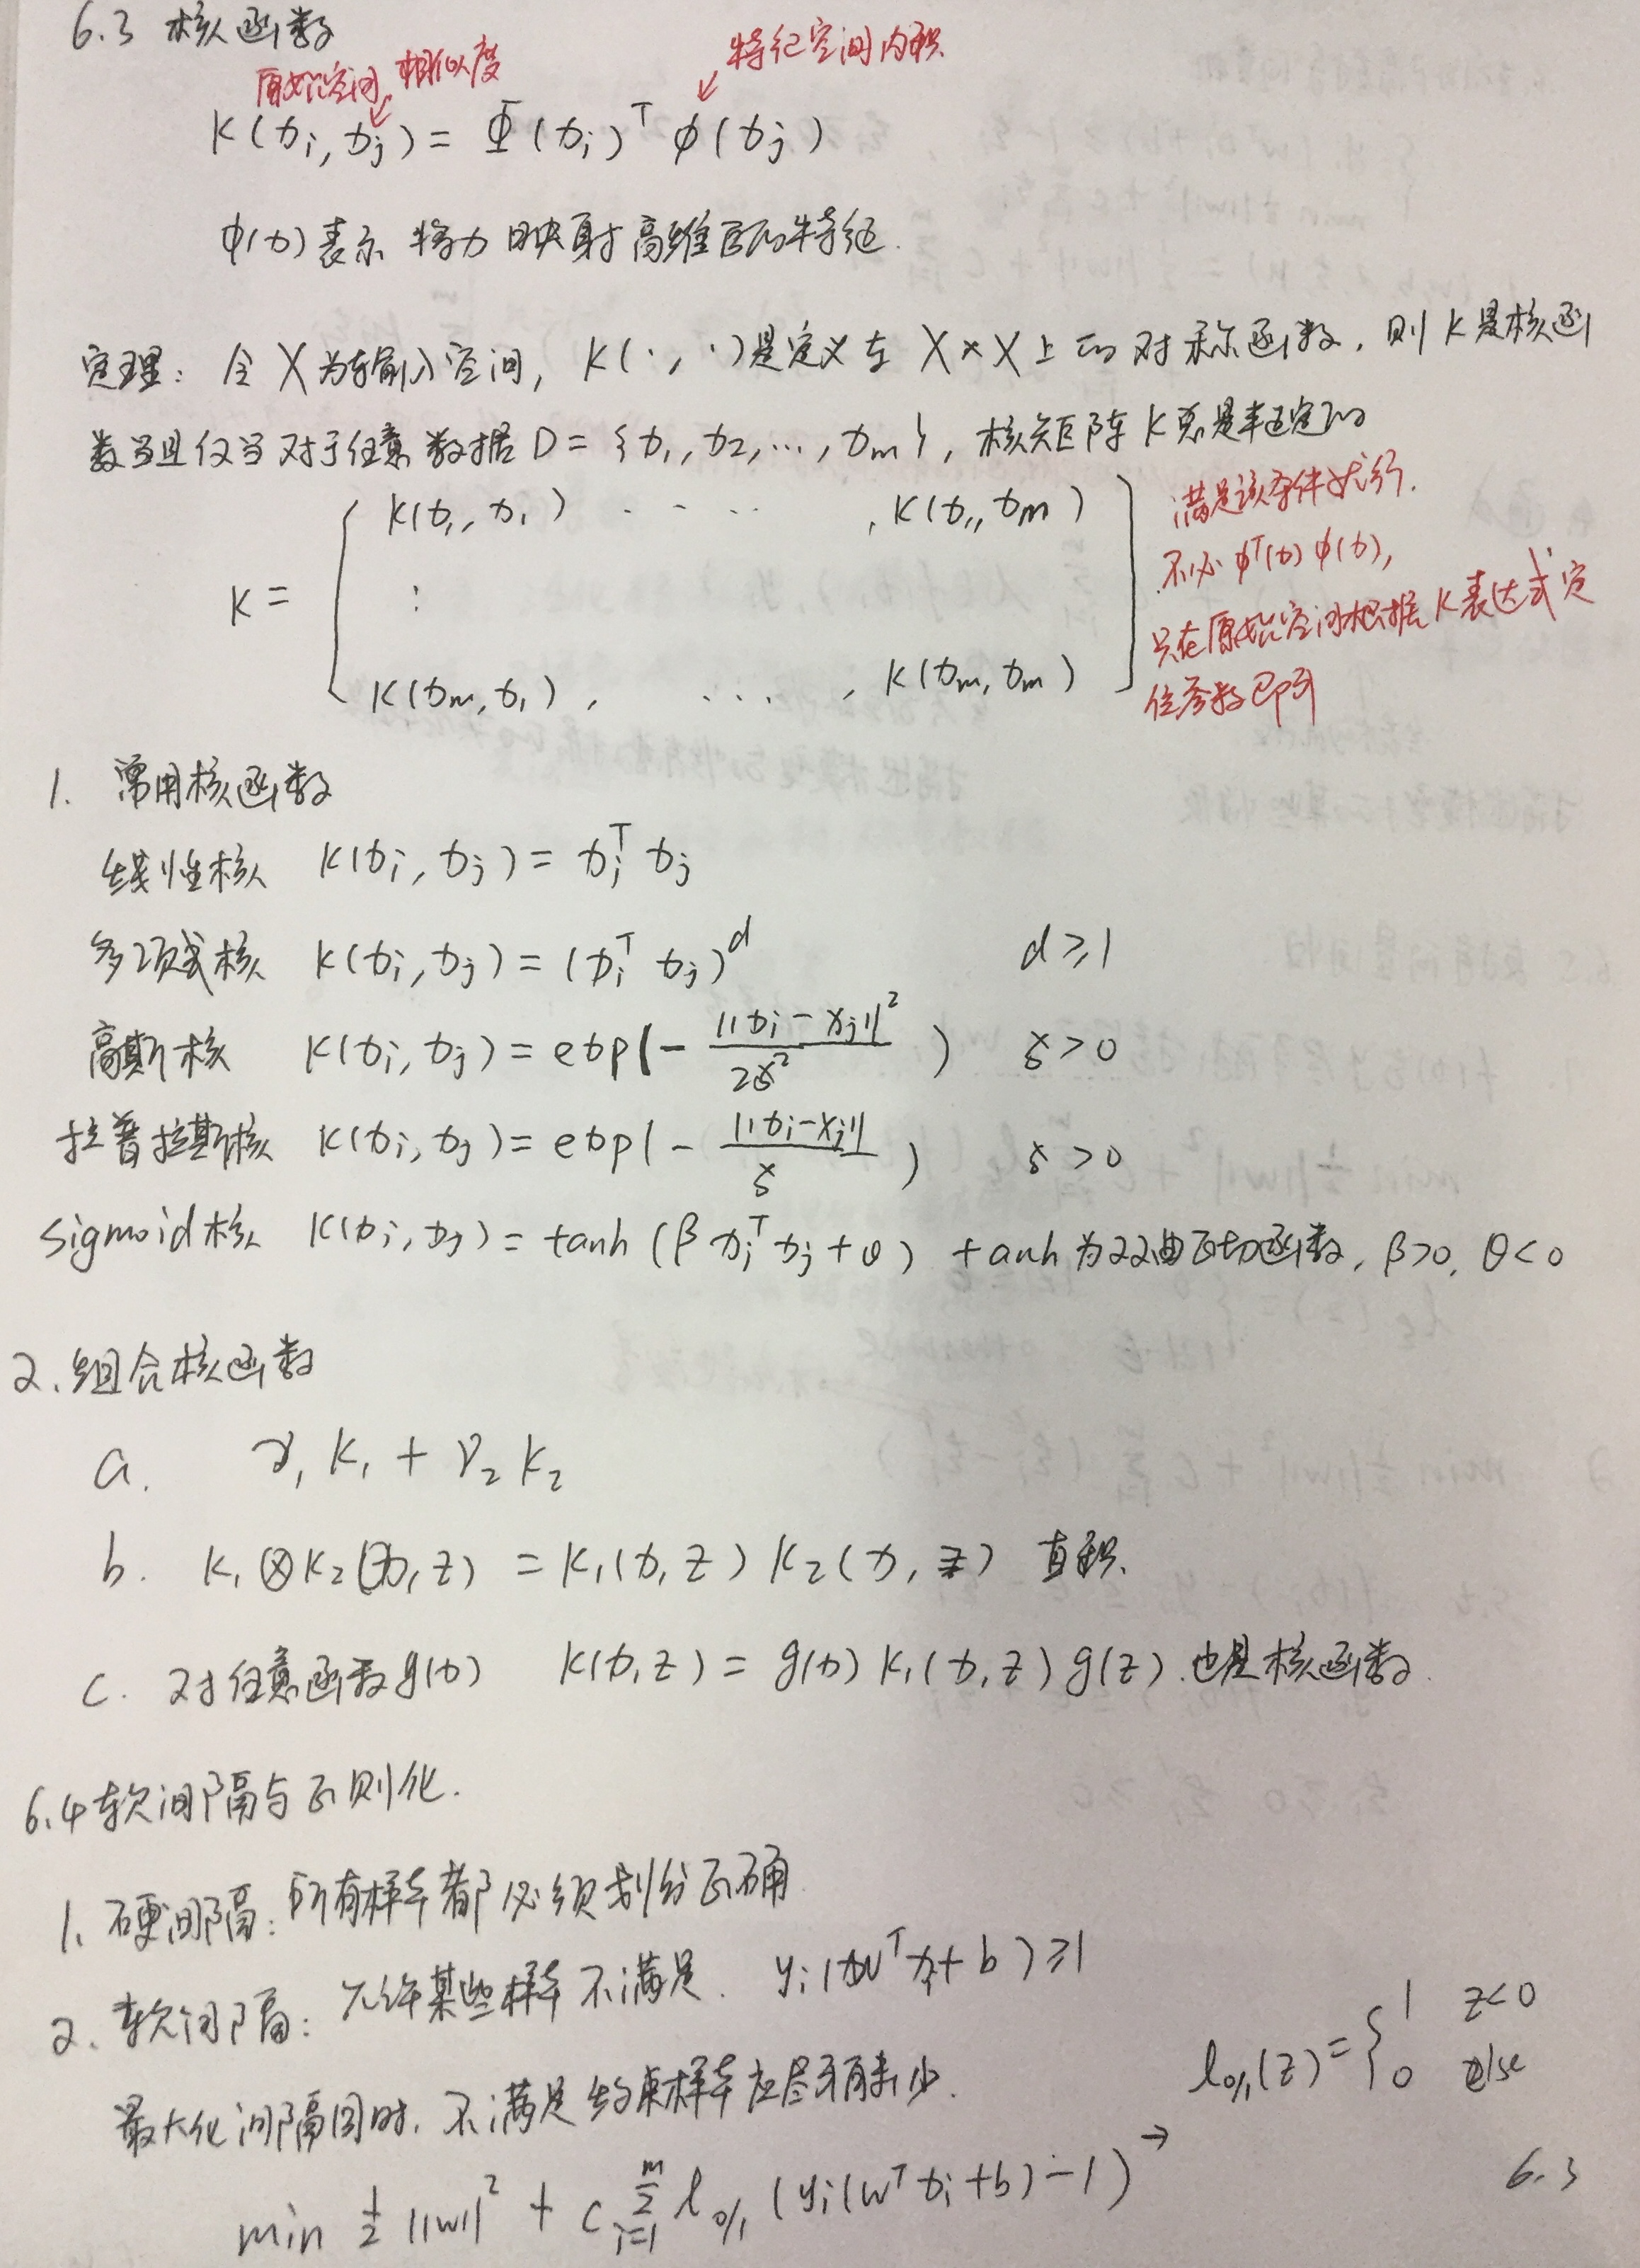 6.3 核函数
原始空间相似度
特征空间内积
K(xᵢ, xⱼ) = Φ(xᵢ)ᵀ φ(xⱼ)
φ(x)表示 将x映射高维后的特征.
定理: 令X为输入空间, K(·, ·)是定义在 X×X上的对称函数, 则K是核函
数当且仅当对于任意数据D={x₁, x₂, ..., xₘ}, 核矩阵K总是半正定的
K = [ K(x₁, x₁) ····, K(x₁, xₘ)
⋮
K(xₘ, x₁), ..., K(xₘ, xₘ) ]
满足该条件就行.
不必 φᵀ(x) φ(x),
只在原始空间根据K表达式定
位参数即可
1. 常用核函数
线性核 K(xᵢ, xⱼ) = xᵢᵀ xⱼ
多项式核 K(xᵢ, xⱼ) = (xᵢᵀ xⱼ)ᵈ d≥1
高斯核 K(xᵢ, xⱼ) = exp(- ||xᵢ-xⱼ||² / 2δ²) δ>0
拉普拉斯核 K(xᵢ, xⱼ) = exp(- ||xᵢ-xⱼ|| / δ) δ>0
Sigmoid核 K(xᵢ, xⱼ) = tanh(β xᵢᵀ xⱼ + θ) tanh为双曲正切函数, β>0, θ<0
2. 组合核函数
a. γ₁ K₁ + γ₂ K₂
b. K₁⊗K₂(x, z) = K₁(x, z) K₂(x, z) 直积.
c. 对任意函数g(x) K(x, z) = g(x) K₁(x, z) g(z). 也是核函数.
6.4 软间隔与正则化.
1. 硬间隔: 所有样本都必须划分正确.
2. 软间隔: 允许某些样本不满足. yᵢ(wᵀxᵢ + b) ≥ 1
最大化间隔同时, 不满足约束样本应尽可能少.
l₀/₁(z) = { 1 z<0
0 else
min ½ ||w||² + C Σᵢ₌₁ᵐ l₀/₁ (yᵢ(wᵀxᵢ+b)-1) →
6.3